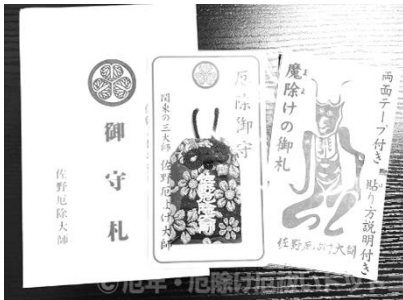 御守札
佐野厄除大師
厄除御守
関東の三大師 佐野厄よけ大師
魔除けの御札
両面テープ付き
貼り方説明付き
佐野厄よけ大師